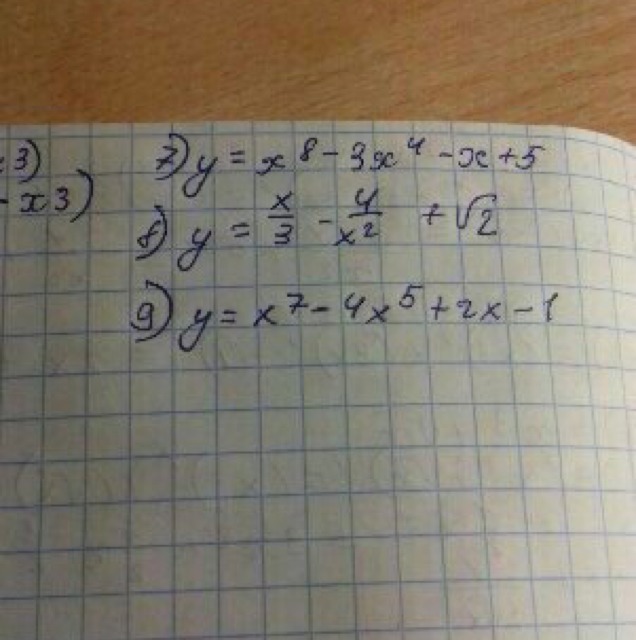 x3)
- x3)
7) y = x⁸ - 3x⁴ - x + 5
8) y = x/3 - 4/x² + √2
9) y = x⁷ - 4x⁵ + 2x - 1